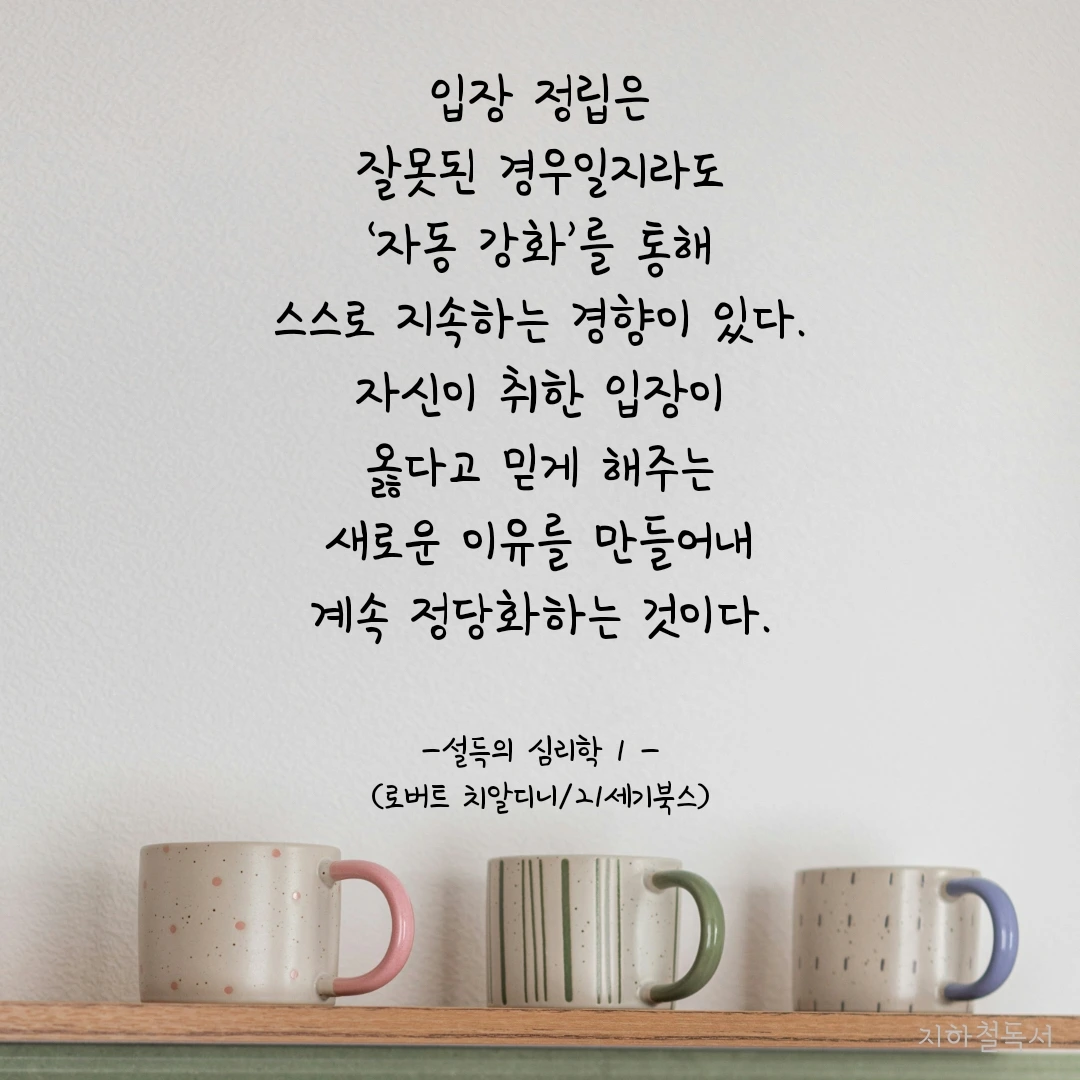 입장 정립은
잘못된 경우일지라도
‘자동 강화’를 통해
스스로 지속하는 경향이 있다.
자신이 취한 입장이
옳다고 믿게 해주는
새로운 이유를 만들어내
계속 정당화하는 것이다.
-설득의 심리학 1 -
(로버트 치알디니/21세기북스)
지하철독서